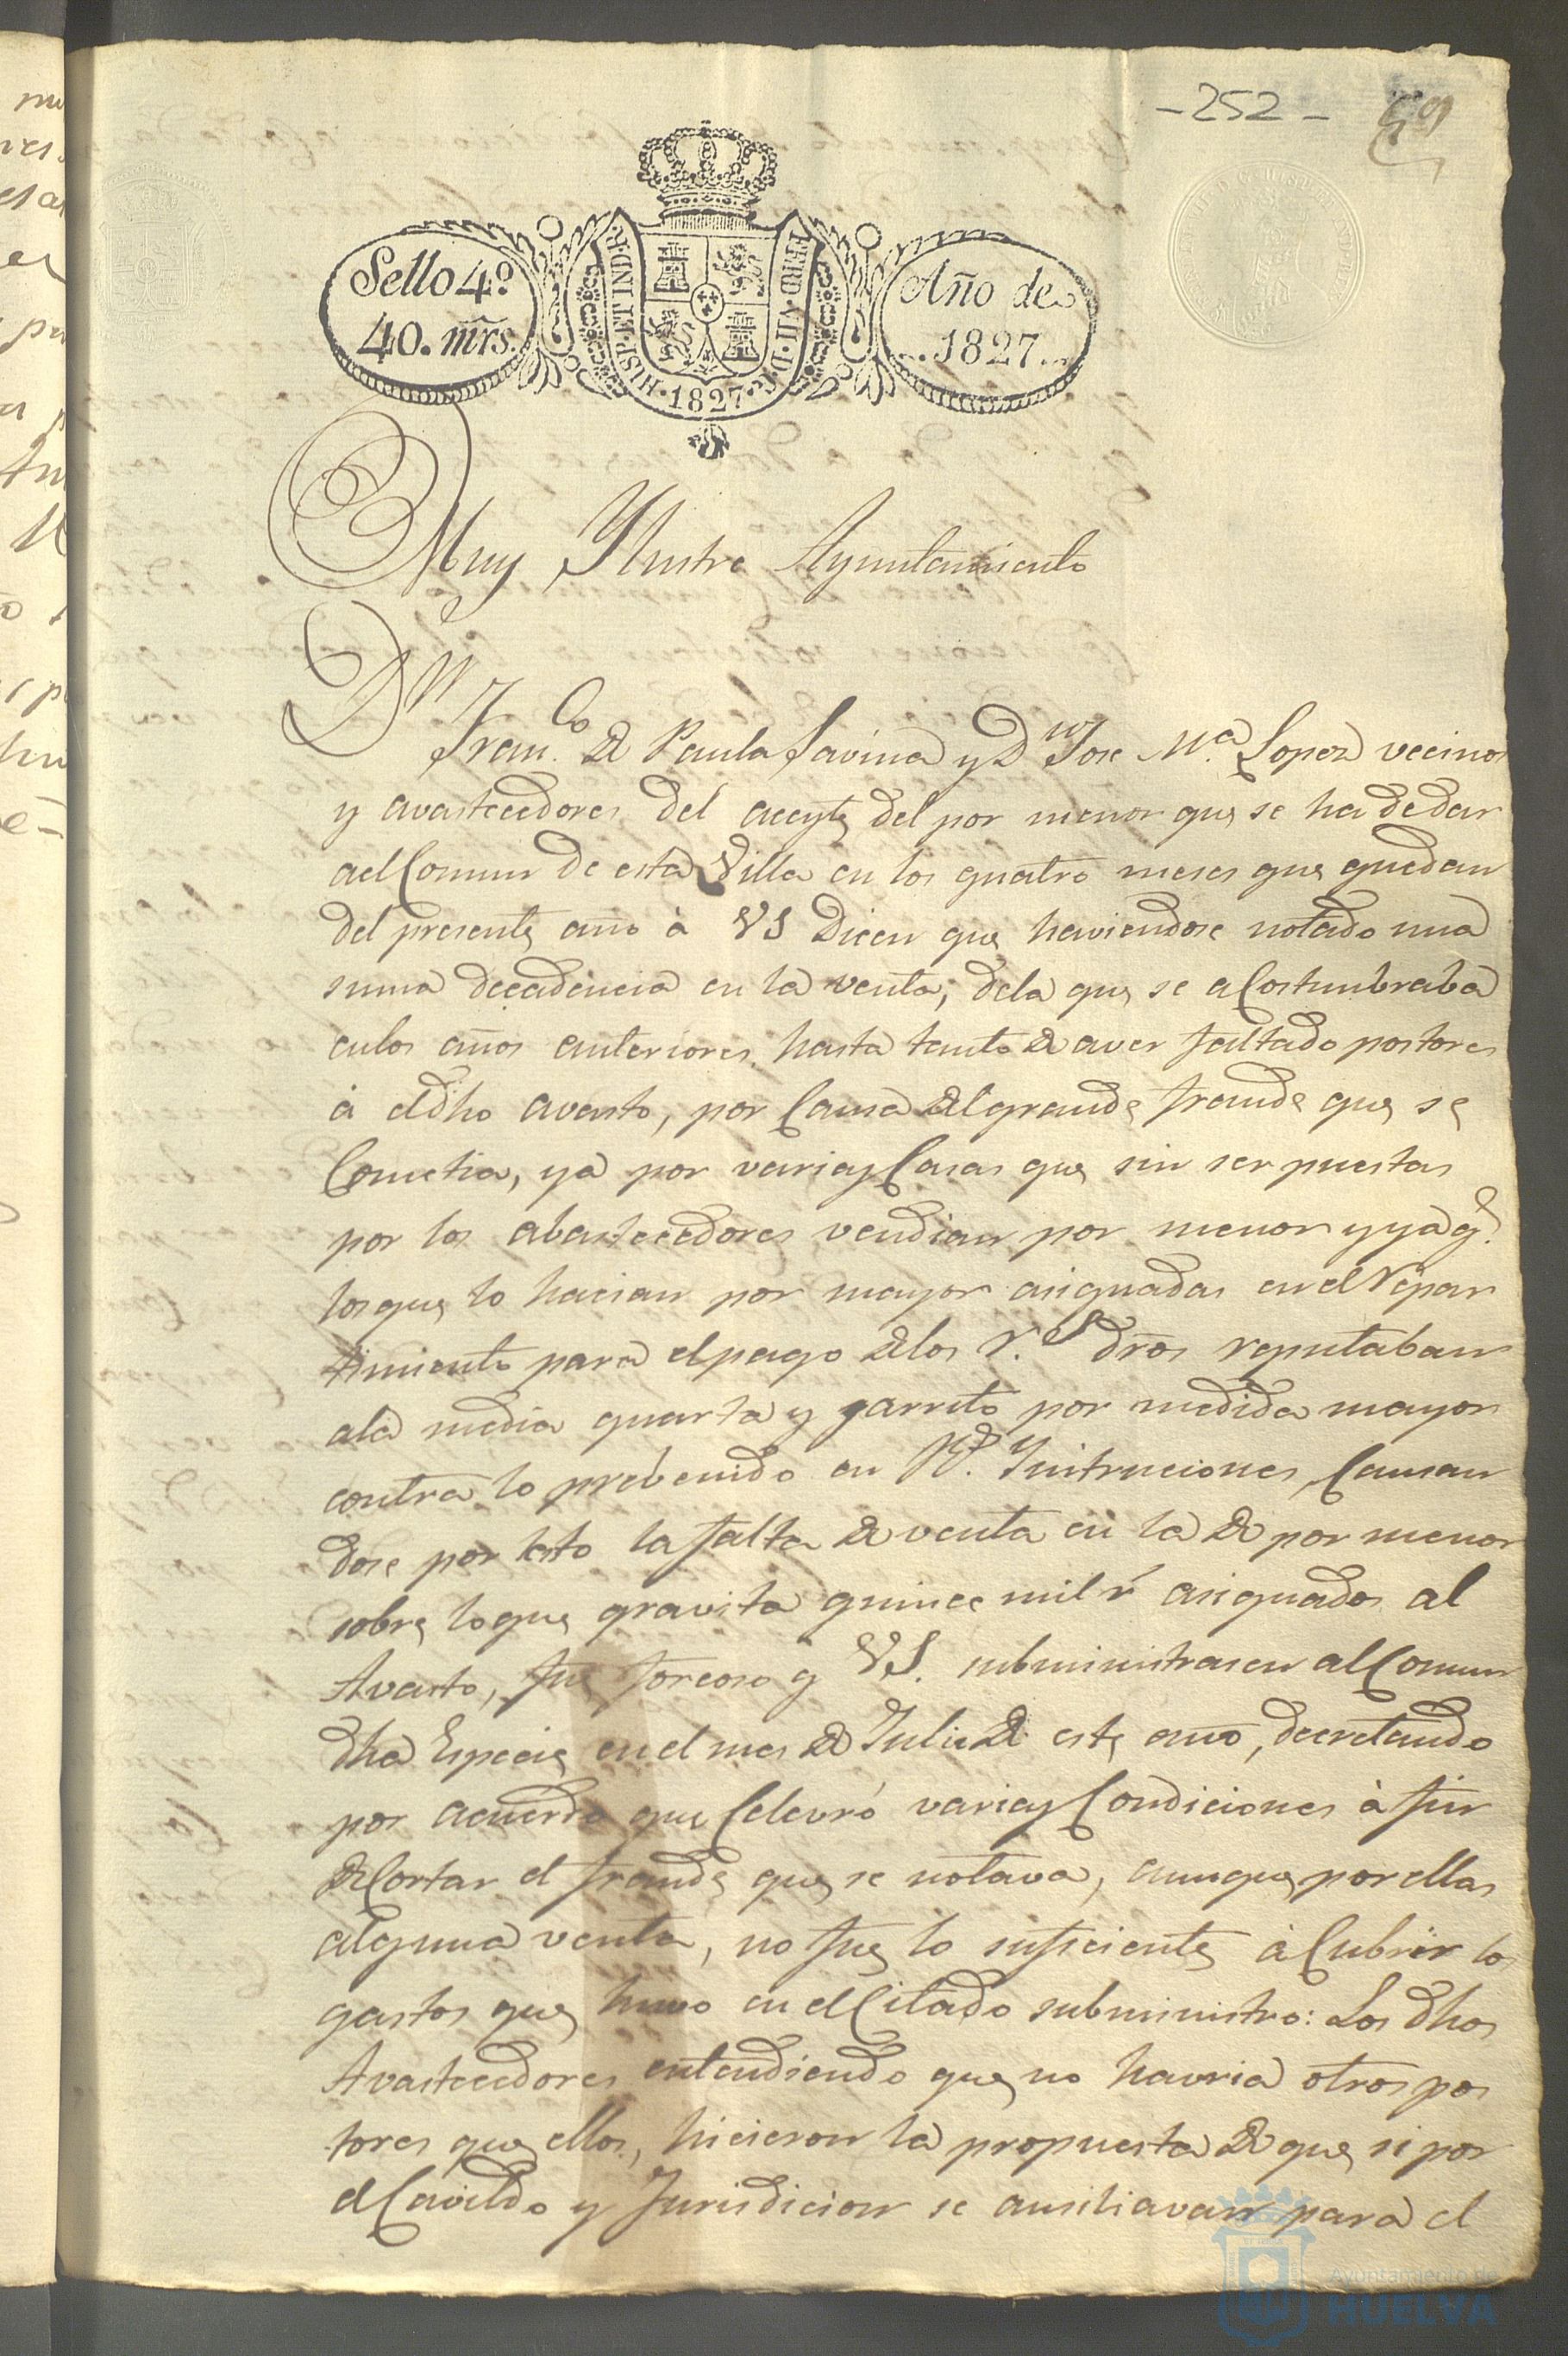 -252-
Sello 4º
40. mrs.
HISP. ET IND. R.
FERD. VII. D. G.
1827
Año de
1827
Muy Ylustre Ayuntamiento
Dn
Franco. de Paula Savina y Dn Jose Ma. Lopez vecinos
y avastecedores del aceyte del por menor que se ha de dar
ael Comun de esta Villa en los quatro meses que quedan
del presente año à VS Dicen que haviendose notado una
suma decadencia en la venta, dela que se a Costumbraba
enlos años anteriores, hasta tanto de aver faltado postores
à el dho avasto, por Causa del grande fraude que se
Cometia, ya por varias Casas que sin ser puestas
por los abastecedores vendian por menor y ya q.e
los que lo hacian por mayor asignadas en el repar
timiento para el pago de los r.s dros reputaban
ala media quarta y jarrito por medida mayor
contra lo prebenido en Rs. Ynstruciones, Causan
dose por esto la falta de venta en la de por menor
sobre lo que gravita quince mil r.s asignados al
Avasto, fue forcoso q VS. subministrasen al Comun
dha Especie en el mes de Julio de este año, decretando
por acuerdo que Celevró varias Condiciones à fin
de Cortar el fraude que se notava, aunque por ellas
alguna venta, no fue lo suficiente à Cubrir los
gastos que huvo en el Citado subministro: Los dhos
Avastecedores entendiendo que no havria otros pos
tores que ellos, hicieron la propuesta de que si por
el Cavildo y Jurisdicion se ausiliavan para el
Ayuntamiento de
HUELVA